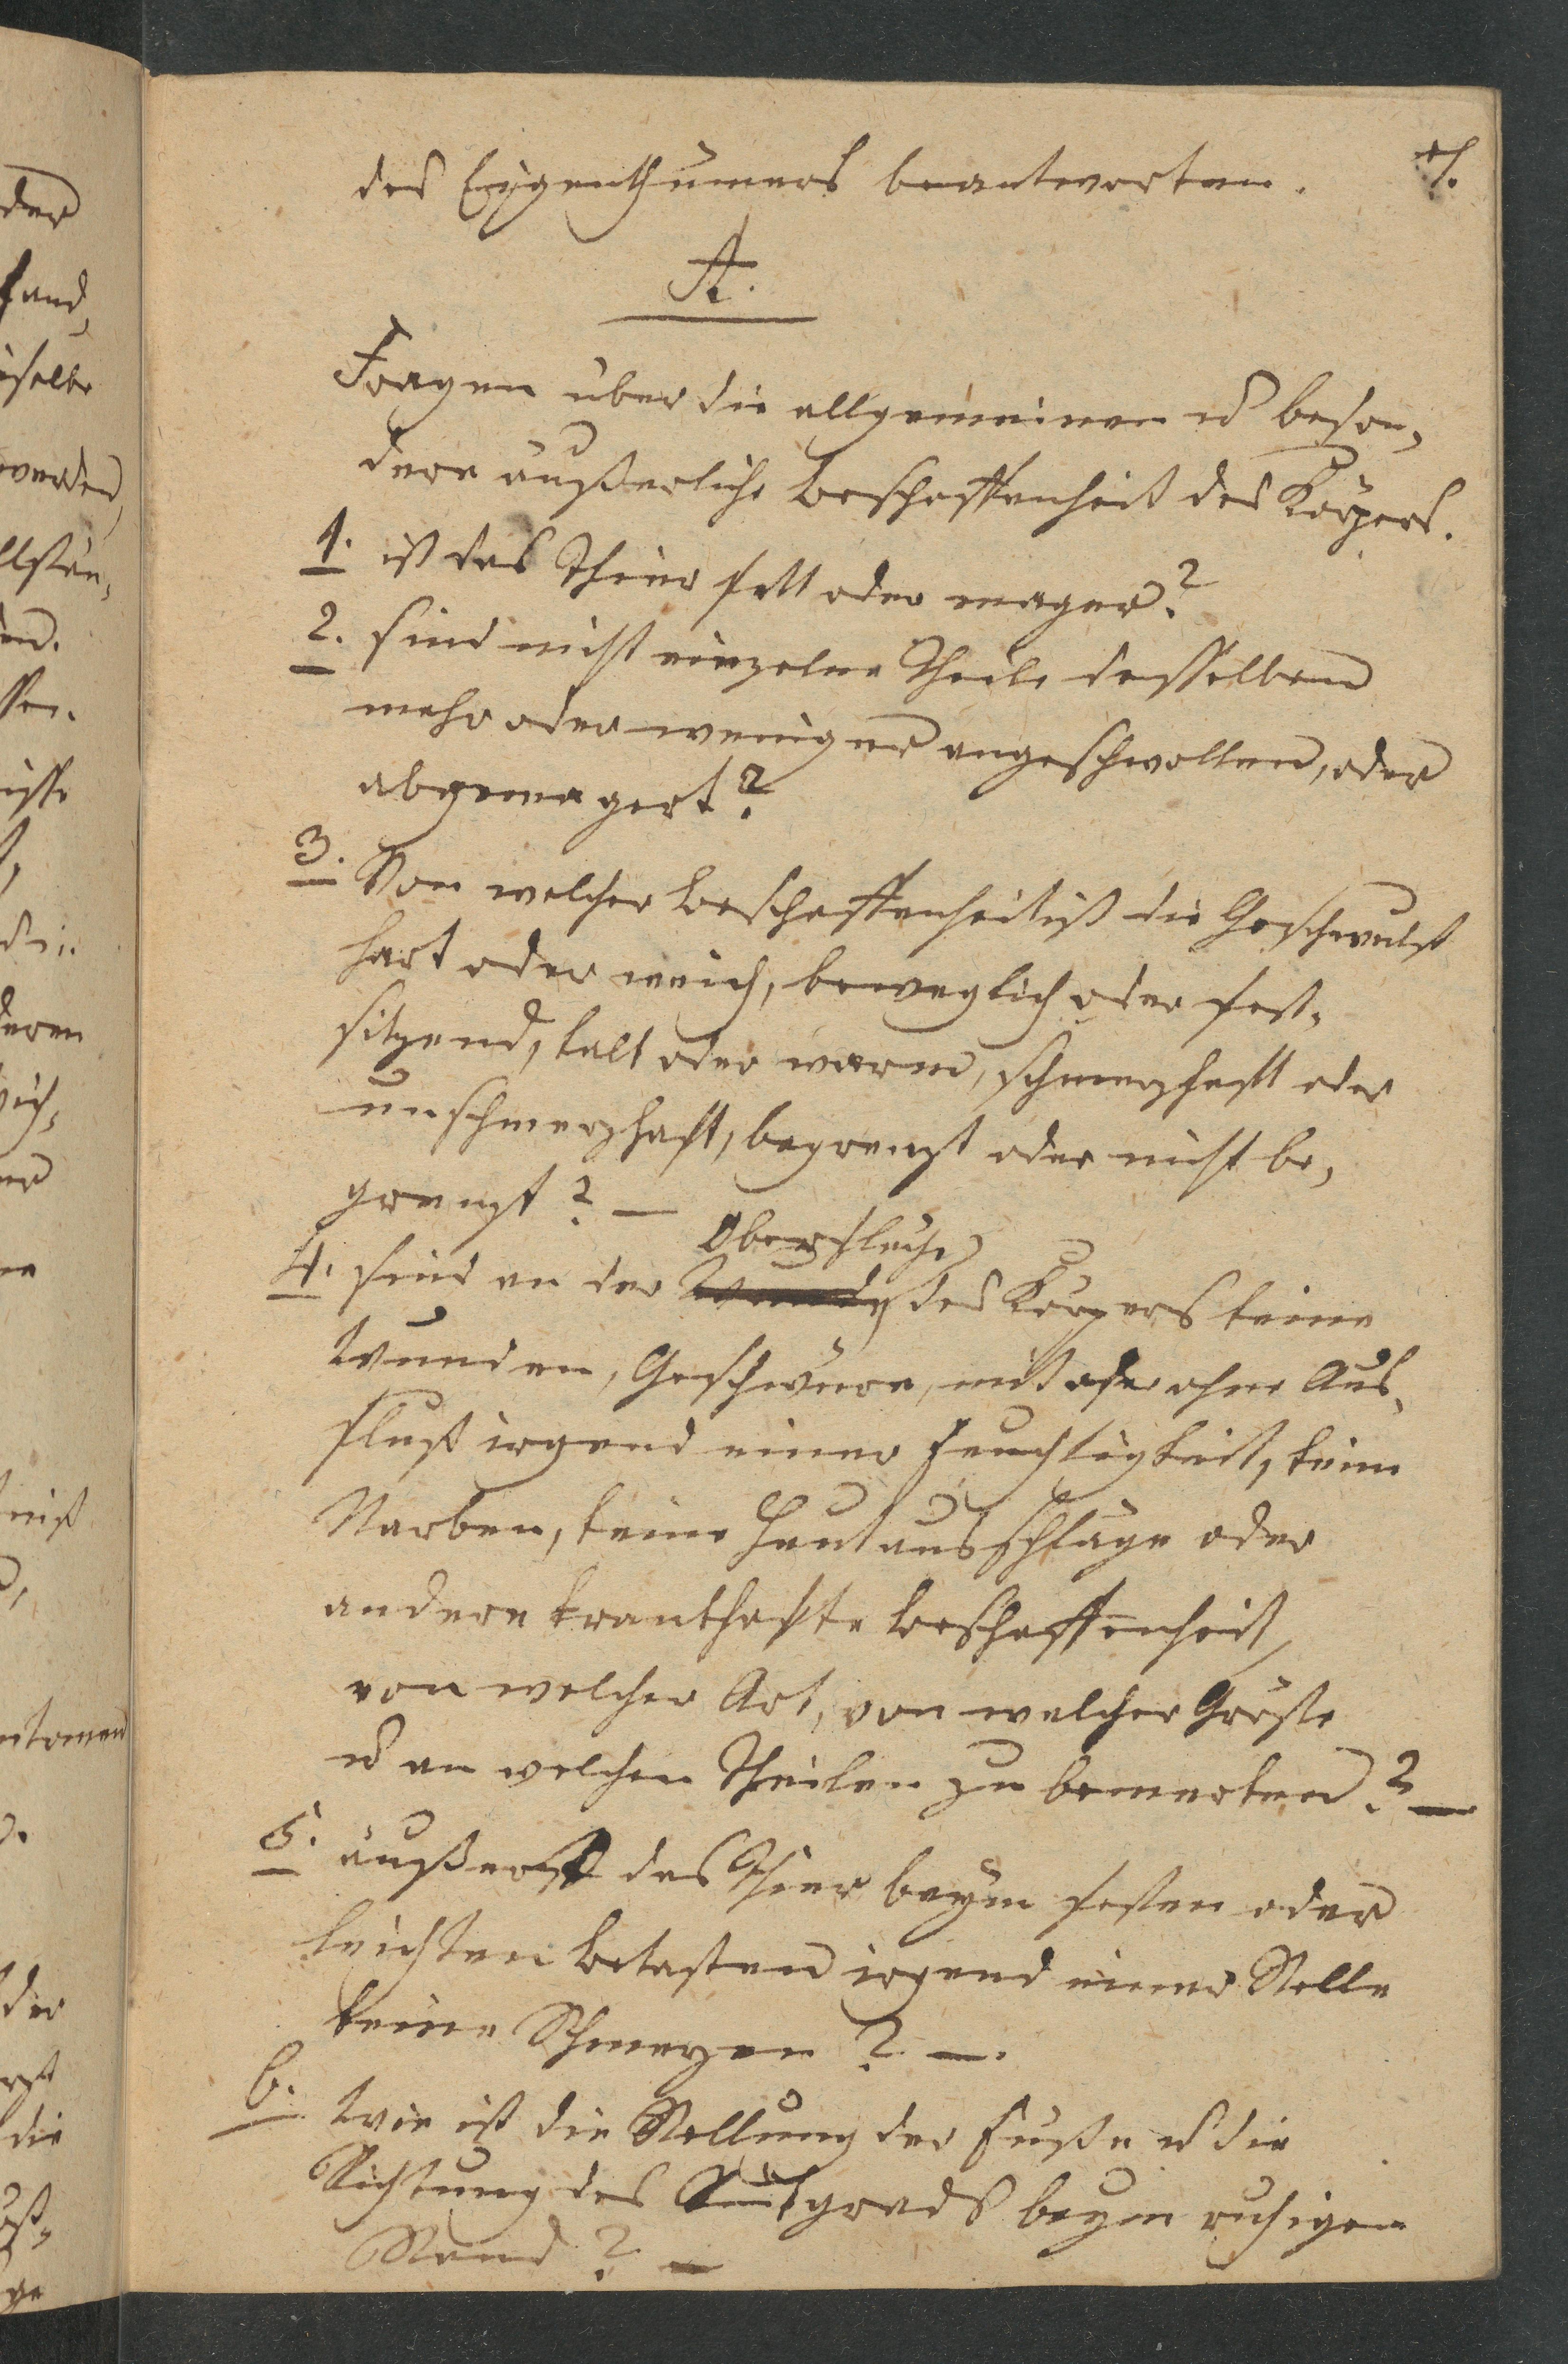 des Eigenthümers beantworten.
A.
Fragen über die allgemeinen u beson¬
dere äußerliche Beschaffenheit des Körpers.
1. ist das Thier fett oder mager?
2. sind nicht einzelne Theile desselben
mehr oder weniger angeschwollen, oder
abgemagert?
3. Von welcher Beschaffenheit ist die Geschwulst
hart oder weich, beweglich oder fest¬
sitzend, kalt oder warm, schmerzhaft oder
unschmerzhaft, begrenzt oder nicht be¬
grenzt? —
Oberfläche
4. sind an der des Körpers keine
Wunden, Geschwüre, mit oder ohne Aus¬
fluß irgend einer Feuchtigkeit, keine
Narben, keine Hautausschläge oder
andere krankhafte Beschaffenheit,
von welcher Art, von welcher Größe
u an welchen Theilen zu bemerken? —
5. äußerst das Thier beym festen oder
leichten Betasten irgend einer Stelle
keine Schmerzen? —.
6. Wie ist die Stellung der Füße u die
Richtung des Rückgrads beym ruhigen
Stand? —
der
werden
deren
der
die
ge